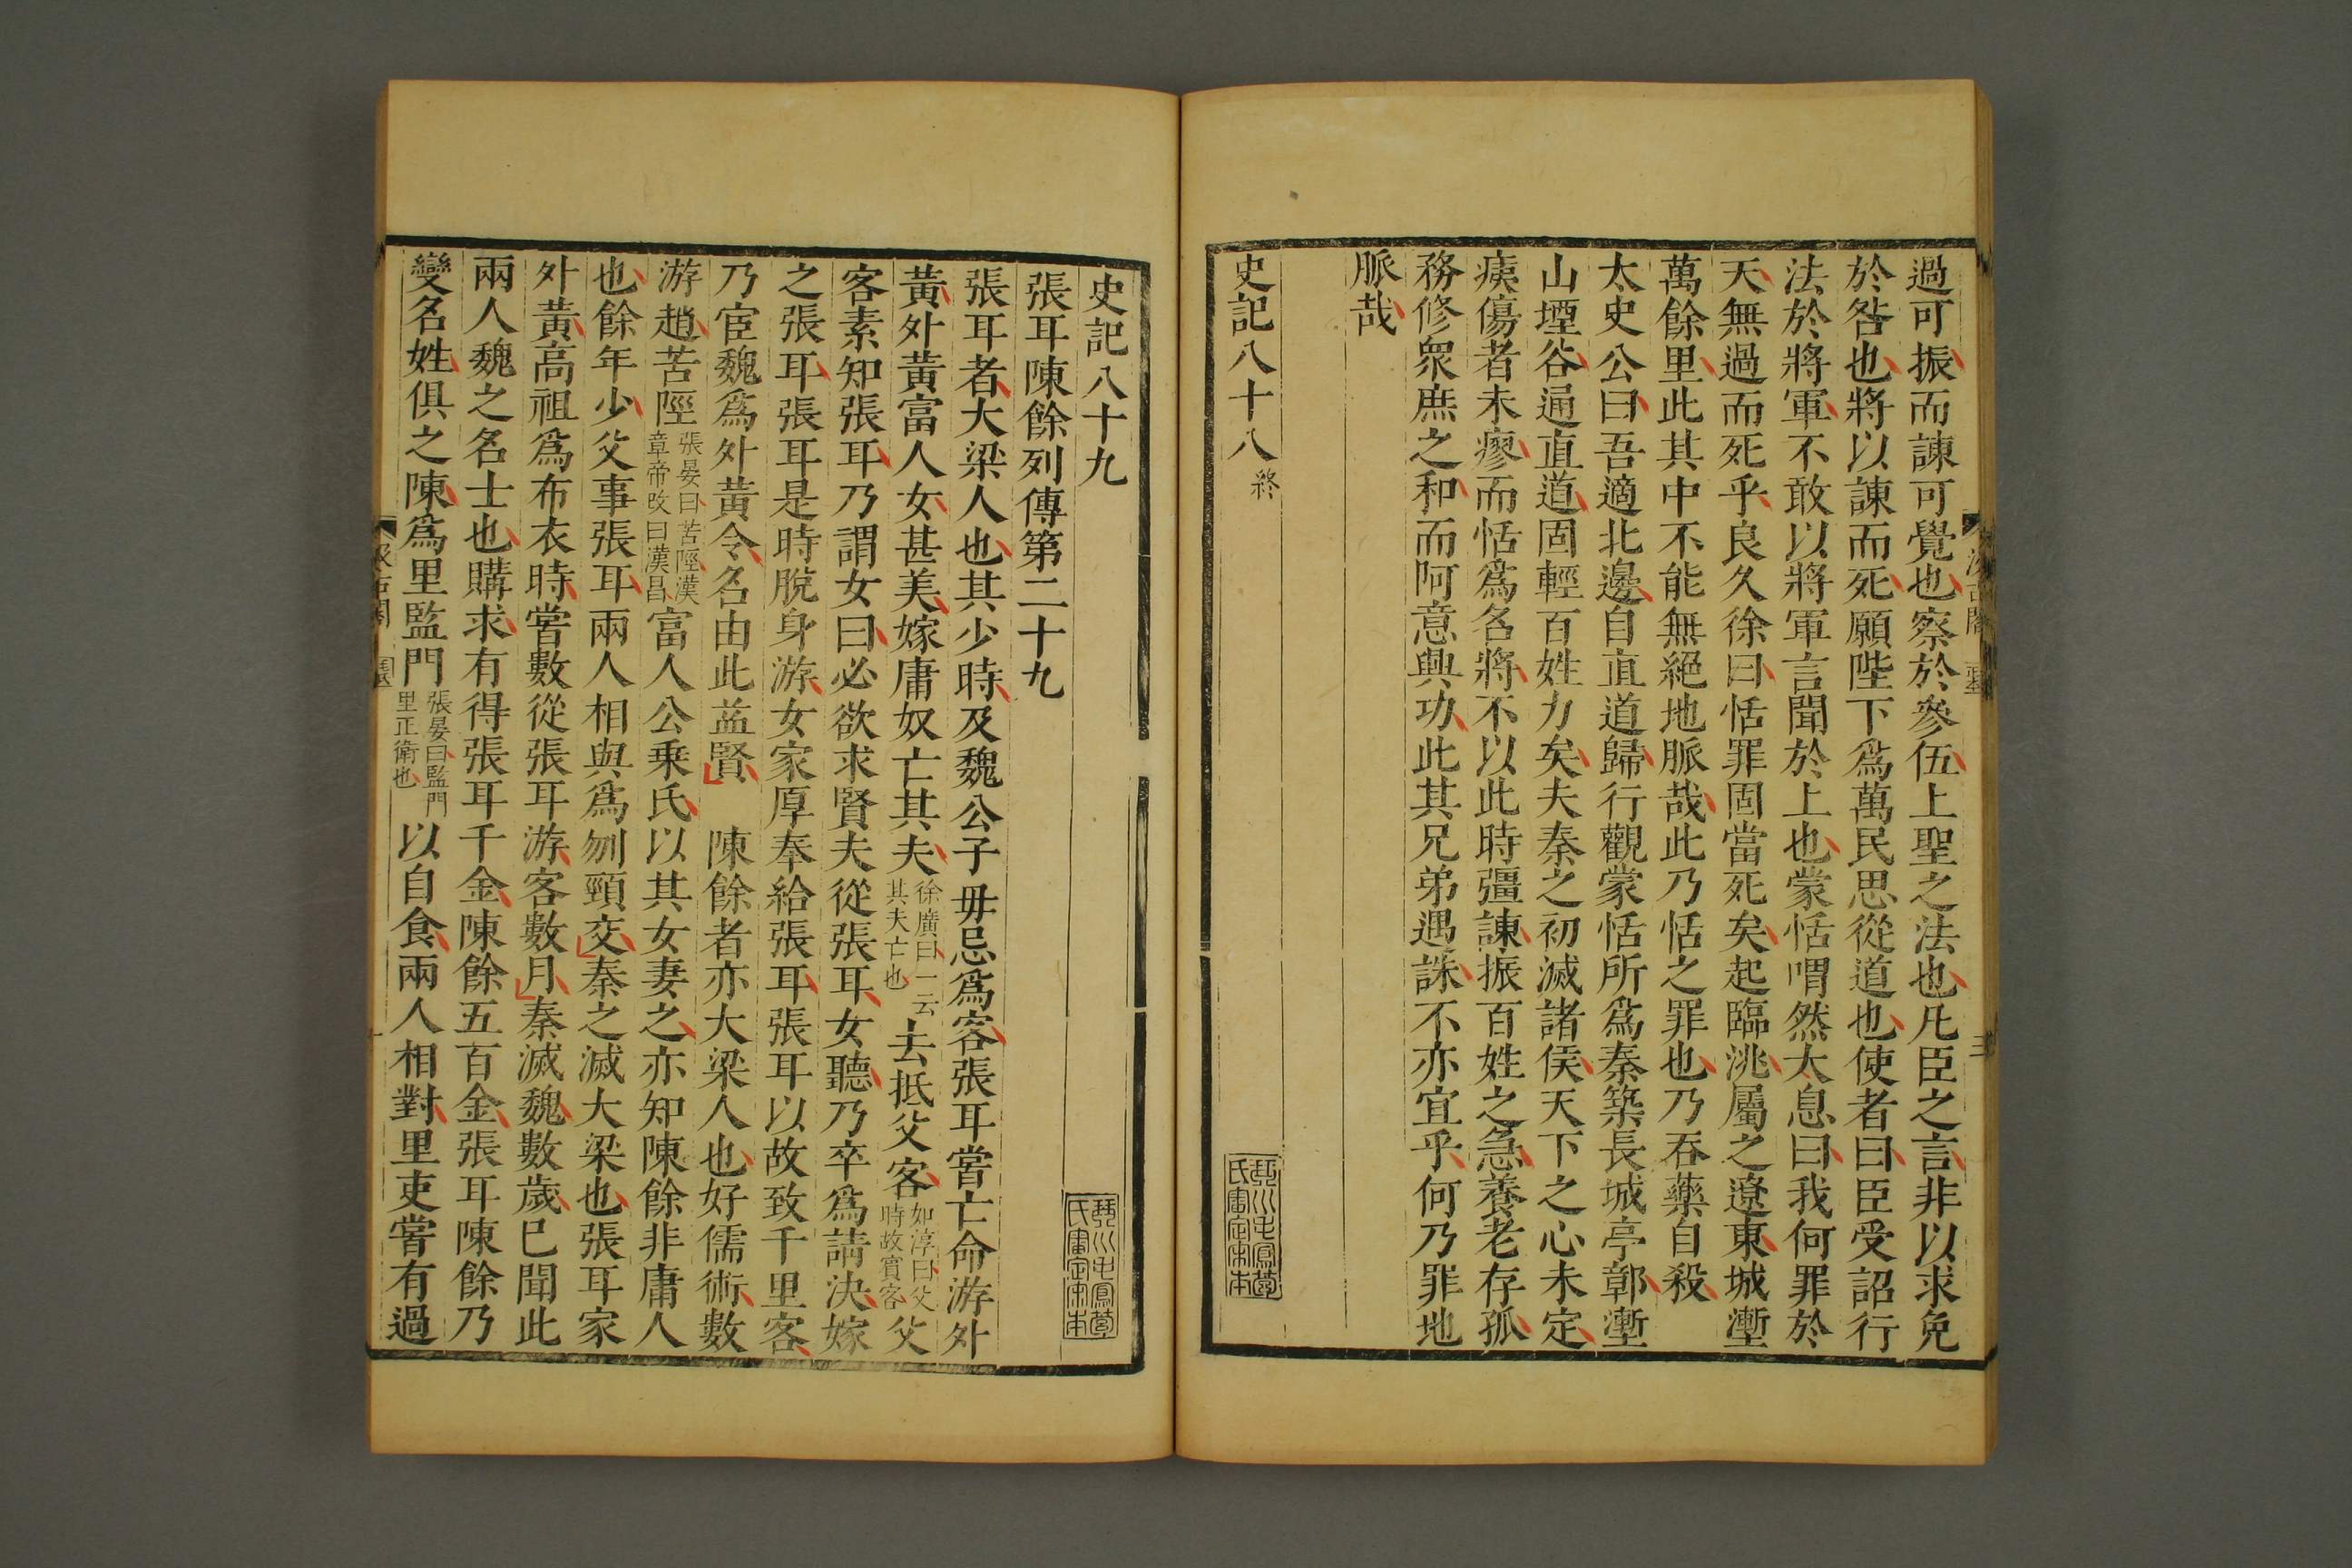 過可振而諫可覺也察於參伍上聖之法也凡臣之言非以求免
於咎也將以諫而死願陛下爲萬民思從道也使者曰臣受詔行
法於將軍不敢以將軍言聞於上也蒙恬喟然大息曰我何罪於
天無過而死乎良久徐曰恬罪固當死矣起臨洮屬之遼東城壍
萬餘里此其中不能無絕地脈哉此乃恬之罪也乃吞藥自殺
太史公曰吾適北邊自直道歸行觀蒙恬所爲秦築長城亭鄣壍
山堙谷通直道固輕百姓力矣夫秦之初滅諸侯天下之心未定
痍傷者未瘳而恬爲名將不以此時彊諫振百姓之急養老存孤
務修衆庶之和而阿意興功此其兄弟遇誅不亦宜乎何乃罪地
脈哉
史記八十八 終
琴川毛鳳苞
氏審定宋本
史記八十九
琴川毛鳳苞
氏審定宋本
張耳陳餘列傳第二十九
張耳者大梁人也其少時及魏公子毋忌爲客張耳嘗亡命游外
黃外黃富人女甚美嫁庸奴亡其夫徐廣曰一云其夫亡也去抵父客如淳曰父時故賓客父
客素知張耳乃謂女曰必欲求賢夫從張耳女聽乃卒爲請決嫁
之張耳張耳是時脫身游女家厚奉給張耳張耳以故致千里客
乃宦魏爲外黃令名由此益賢 陳餘者亦大梁人也好儒術數
游趙苦陘張晏曰苦陘漢章帝改曰漢昌富人公乘氏以其女妻之亦知陳餘非庸人
也餘年少父事張耳兩人相與爲刎頸交秦之滅大梁也張耳家
外黃高祖爲布衣時嘗數從張耳游客數月秦滅魏數歲已聞此
兩人魏之名士也購求有得張耳千金陳餘五百金張耳陳餘乃
變名姓俱之陳爲里監門張晏曰監門里正衛也以自食兩人相對里吏嘗有過